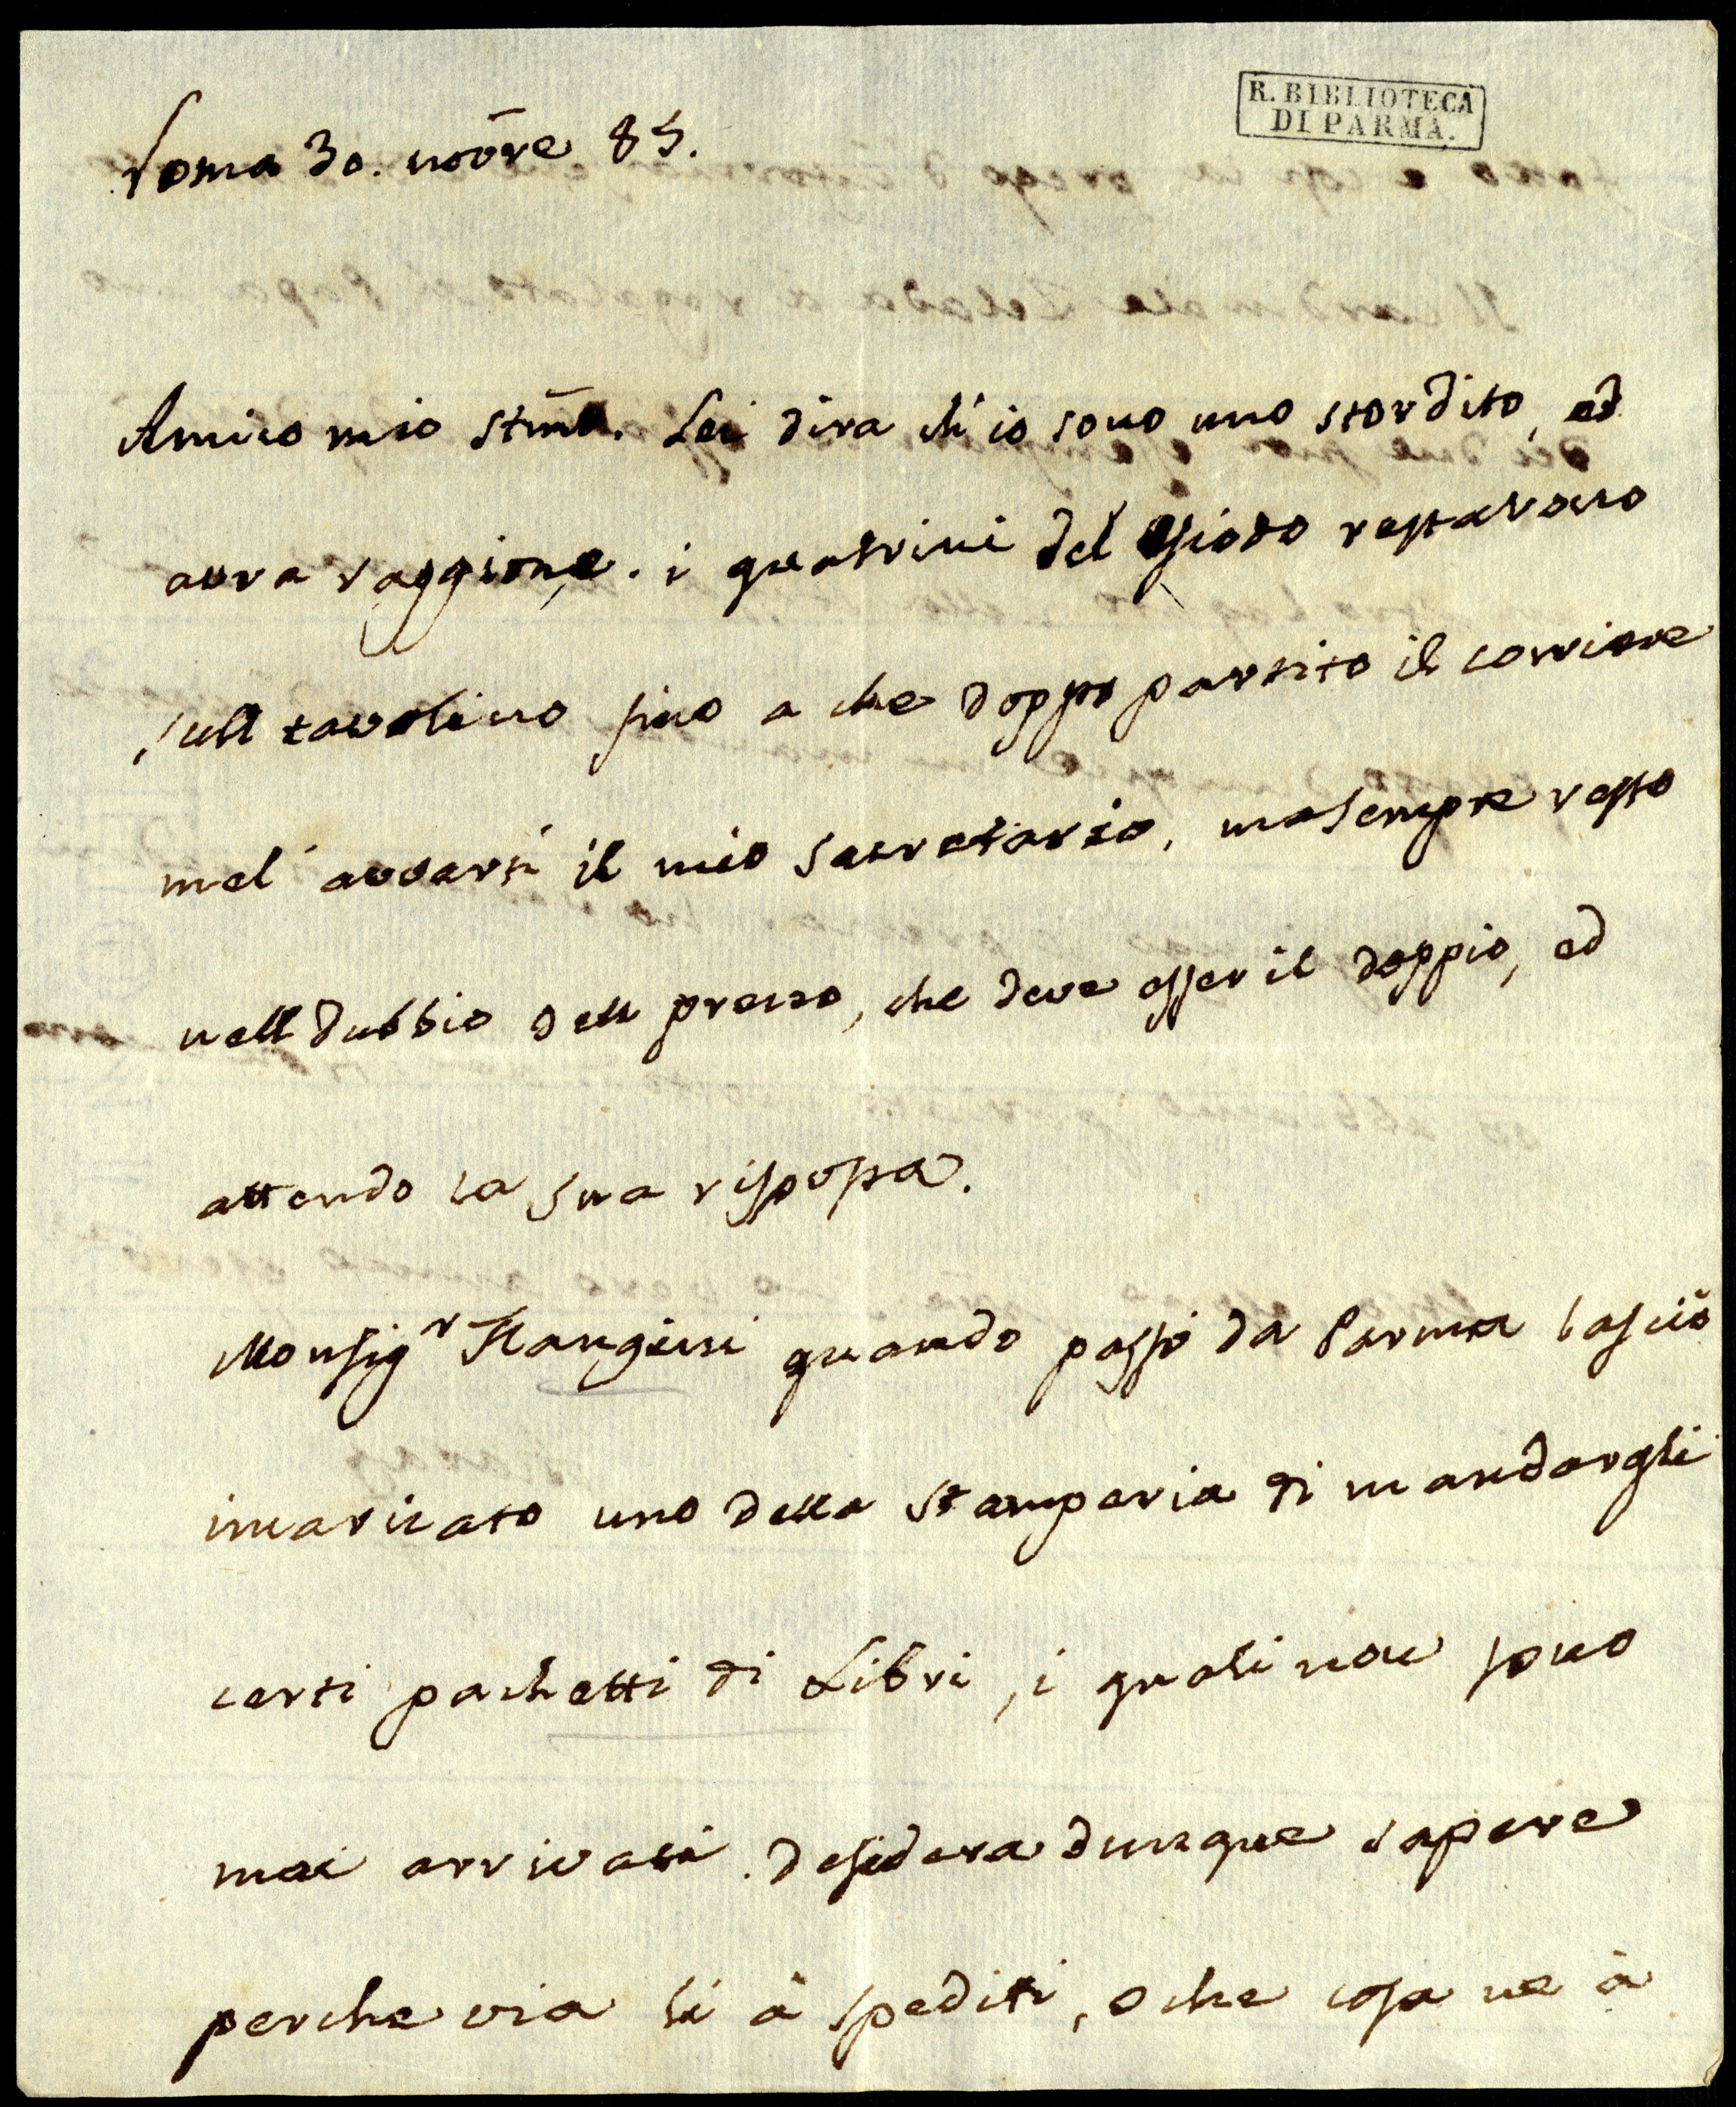 R. BIBLIOTECA
DI PARMA.
Roma 30. novre 85.
Amico mio stimo. Lei dira ch'io sono uno stordito, ed
avra raggione. i quatrini del restavano
sull tavolino fino a che doppo partito il corriere
mel' avvarti il mio sacretario, ma sempre resto
nell dubbio dell prezzo, che deve esser il doppio, ed
attendo la sua risposta.
Monsigr quando passò da Parma lasciò
incaricato uno della stamperia di mandargli
certi pachetti di Libri, i quali non sono
mai arrivati. desidera dunque sapere
perche via li à spediti, o che cosa ne à